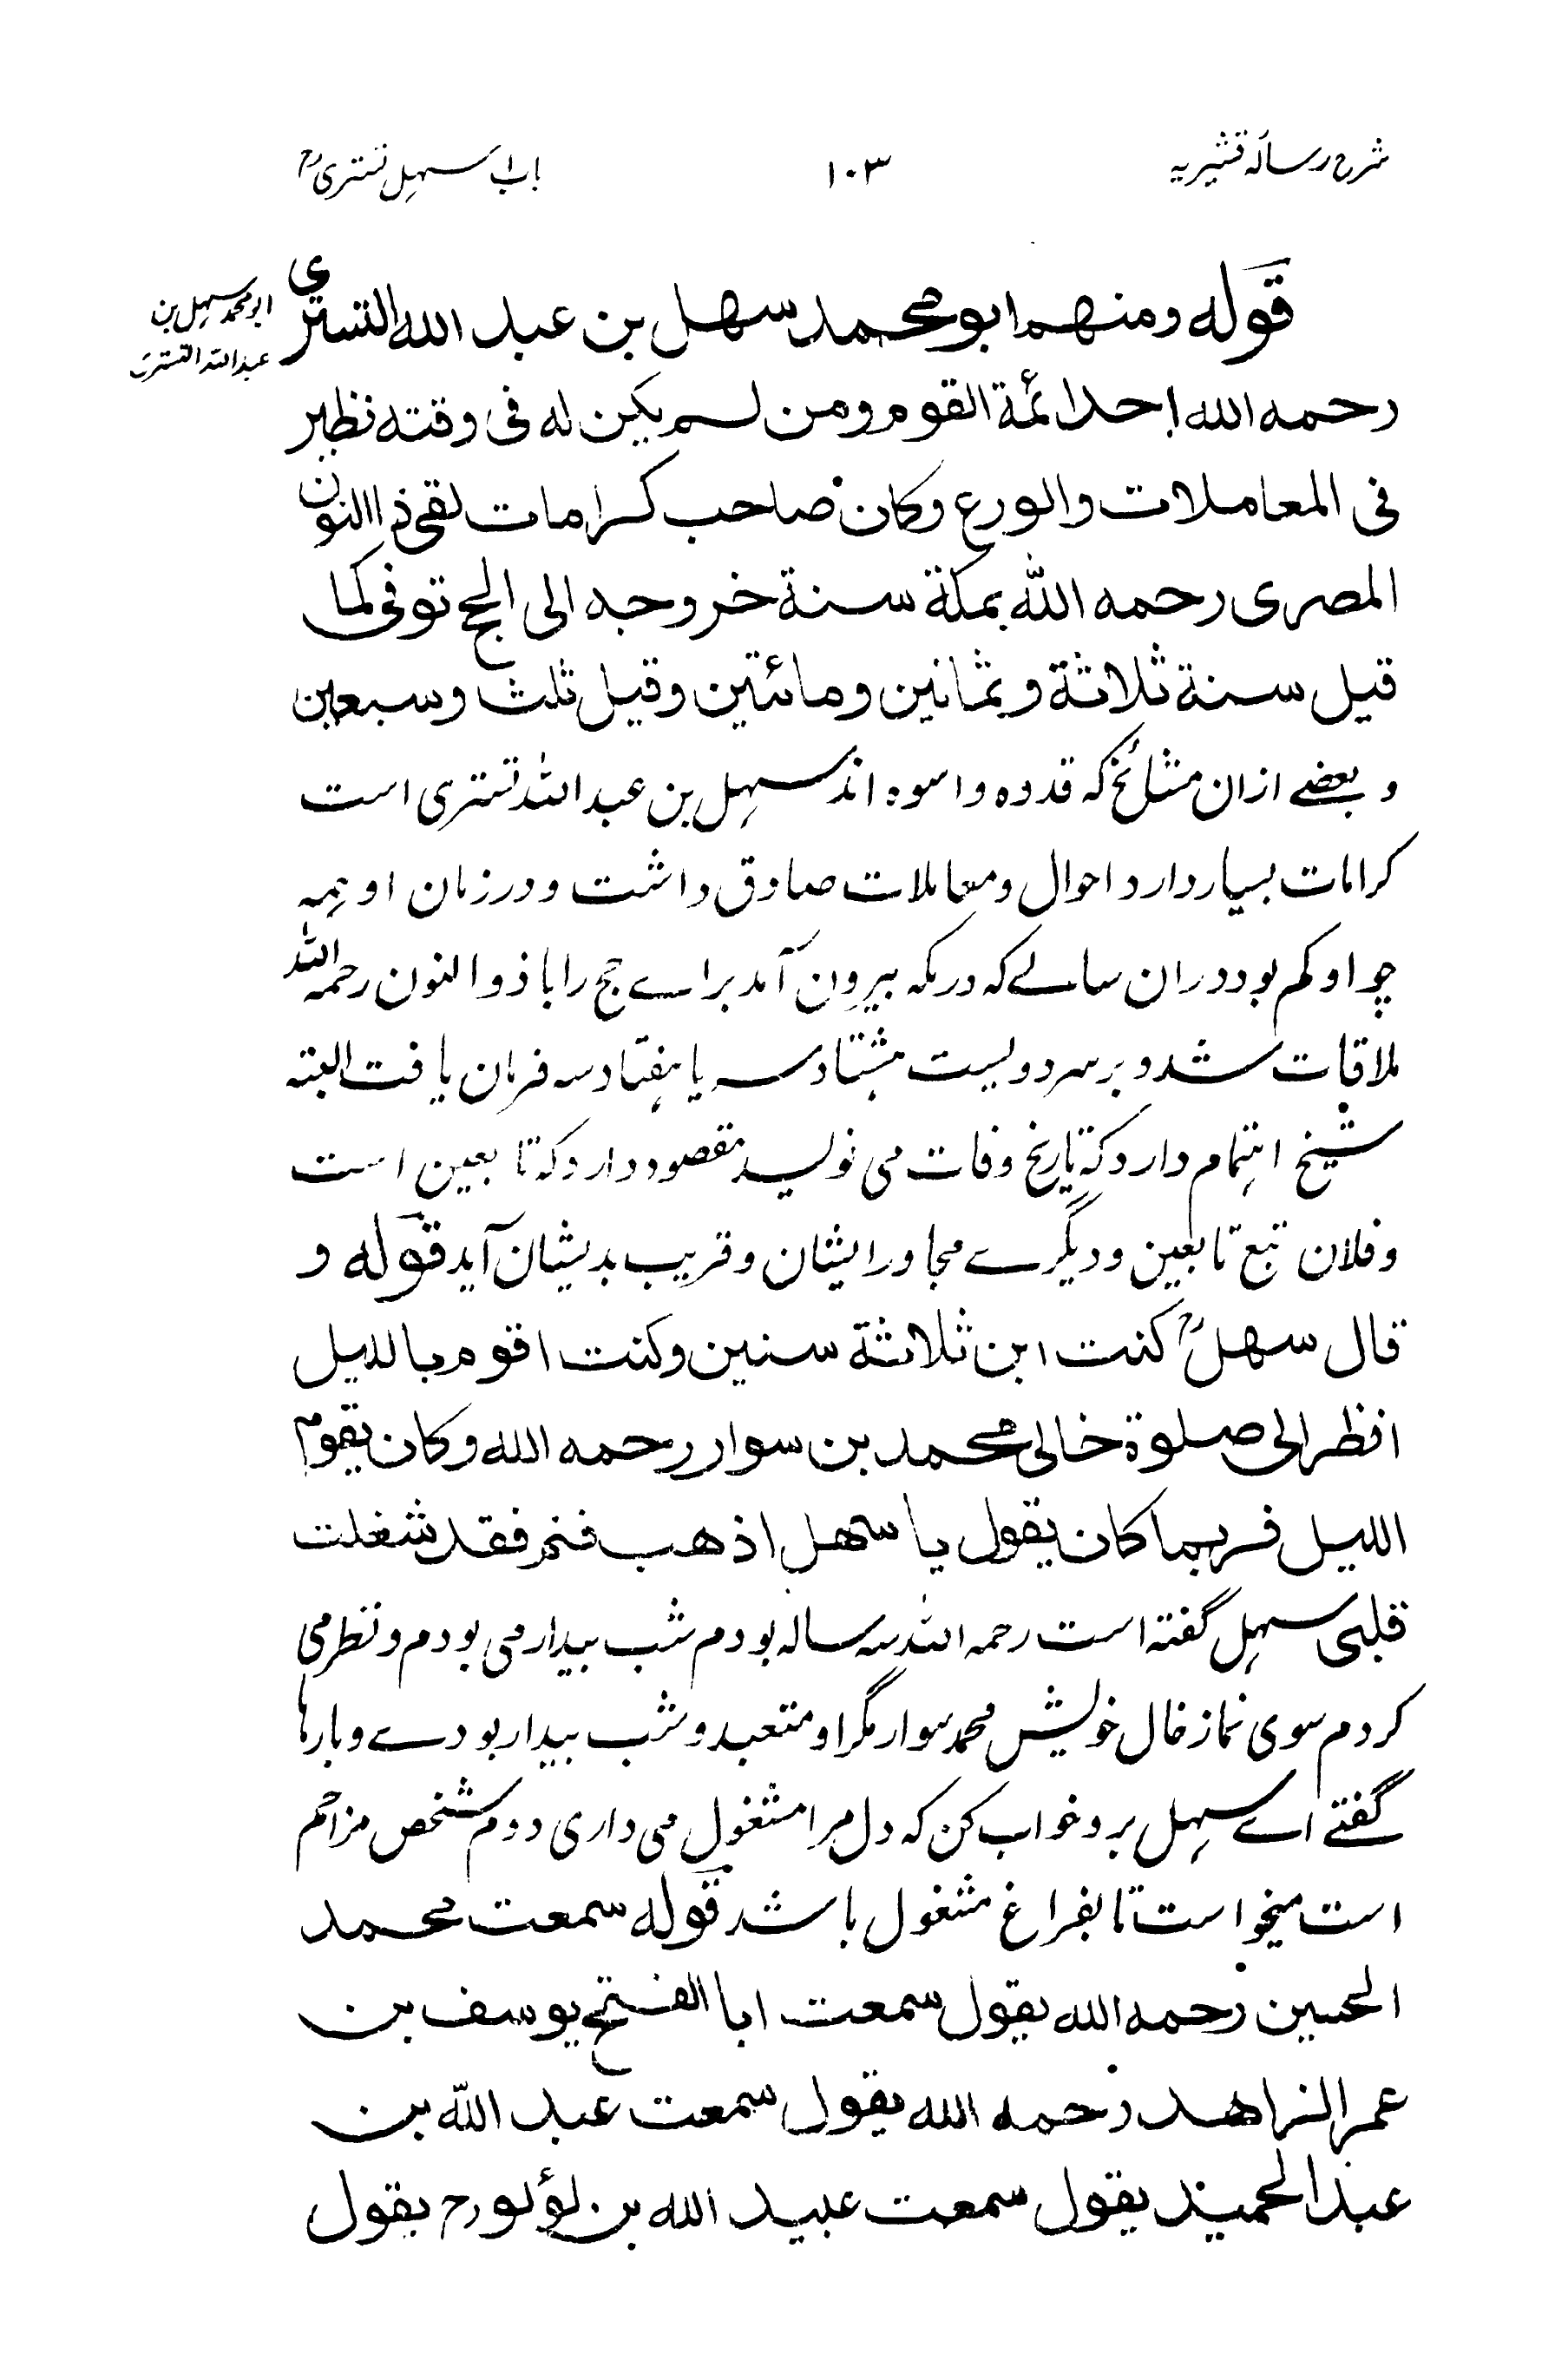 شرح رسالہ قشیریہ
۱۰۳
باب سہل تستریؒ
ابو محمد سہل بن
عبداللہ التستری
قوله ومنهم ابو محمد سهل بن عبد الله التستری
رحمه الله احد ائمة القوم ومن لم يكن له فی وقته نظير
فی المعاملات والورع وكان صاحب كرامات لقی ذا النون
المصری رحمه الله بمكة سنة خروجه الی الحج توفی كما
قيل سنة ثلاثة وثمانين ومائتين وقيل ثلث وسبعين
و بعضے ازان مشائخ کہ قدوہ واسوہ اند سہل بن عبداللہ تستری است
کرامات بسیار دارد احوال ومعاملات صادق داشت ودر زمان او ہمہ
چو او کم بود دران سالے کہ در مکہ بیرون آمد براے حج را با ذوالنون رحمہ اللہ
ملاقات شد و برسر دویست ہشتاد سہ یا ہفتاد سہ فرمان یافت البتہ
شیخ اہتمام دارد کہ تاریخ وفات می نویسد مقصود دارد کہ تابعین است
و فلان تبع تابعین و دیگرے مجاور ایشان و قریب بدیشان آید قوله و
قال سهلؒ كنت ابن ثلاثة سنين وكنت اقوم بالليل
انظر الی صلوة خالی محمد بن سوار رحمه الله وكان يقوم
الليل فربما كان يقول يا سهل اذهب فنم فقد شغلت
قلبی سہل گفتہ است رحمہ اللہ سہ سالہ بودم شب بیدار می بودم و نظر می
کردم سوی نماز خال خویش محمد سوار مگر او متعبد و شب بیدار بودے و بارہا
گفتے اے سہل برو خواب کن کہ دل مرا مشغول می داری دوم شخص مزاحم
است میخواست تا بفراغ مشغول باشد قوله سمعت محمد
الحسین رحمه الله يقول سمعت ابا الفتح يوسف بن
عمر الزاهد رحمه الله يقول سمعت عبد الله بن
عبد الحميد يقول سمعت عبيد الله بن لؤلؤ رح يقول